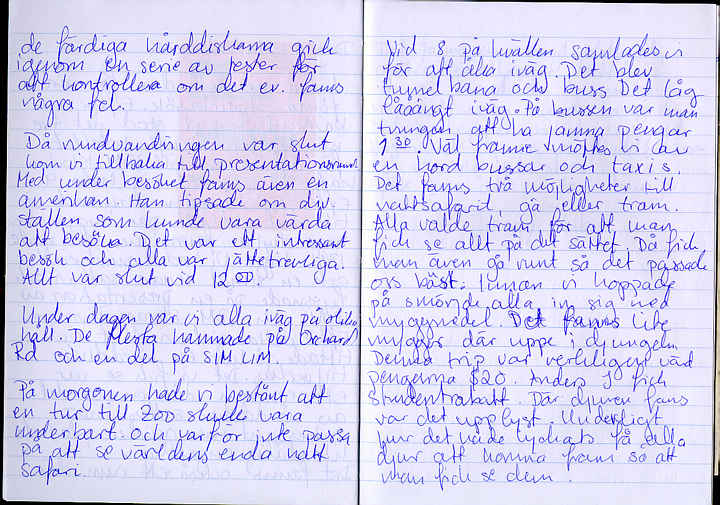 de färdiga hårddiskarna gick
igenom en serie av tester för
att kontrollera om det ev. fanns
några fel.
Då rundvandringen var slut
kom vi tillbaka till presentationsrum.
Med under besöket fanns även en
amerikan. Han tipsade om div.
ställen som kunde vara värda
att besöka. Det var ett intressant
besök och alla var jättetrevliga.
Allt var slut vid 12 00.
Under dagen var vi alla iväg på olika
håll. De flesta hamnade på Orchard
Rd och en del på SIM LIM.
På morgonen hade vi bestämt att
en tur till Zoo skulle vara
underbart. Och varför inte passa
på att se världens enda natt
safari.
Vid 8 på kvällen samlades vi
för att åka iväg. Det blev
tunnelbana och buss. Det låg
låååångt iväg. På bussen var man
tvungen att ha jämna pengar
1 30. Väl framme möttes vi av
en hord bussar och taxis.
Det fanns två möjligheter till
nattsafarit, gå eller tram.
Alla valde tram för att man
fick se allt på det sättet. Då fick
man även gå runt så det passade
oss bäst. Innan vi hoppade
på smörjde alla in sig med
myggmedel. Det fanns lite
mygger där uppe i djungeln.
Denna trip var verkligen värd
pengarna $20. Anders J fick
studentrabatt. Där djuren fanns
var det upplyst. Underligt
hur det hade lyckats få alla
djur att komma fram så att
man fick se dem.